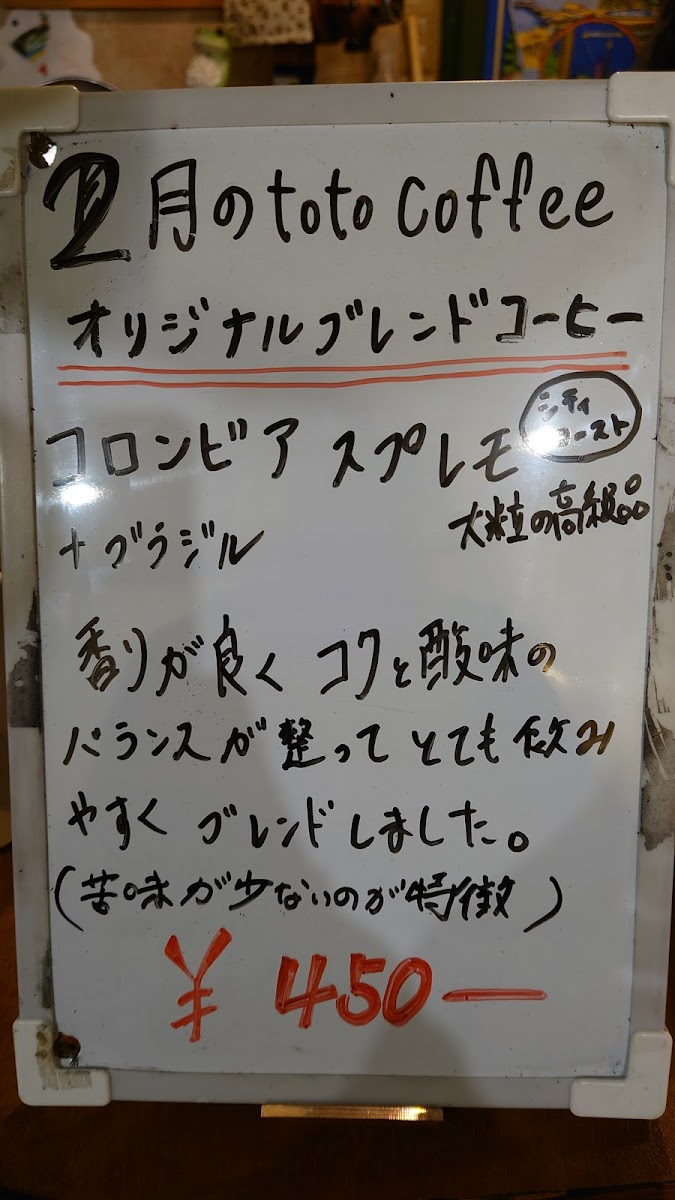 2月のtoto coffee
オリジナルブレンドコーヒー
コロンビア スプレモ
シティ
ロースト
大粒の高級品
+ブラジル
香りが良く コクと酸味の
バランスが 整って とても飲み
やすく ブレンドしました。
(苦味が少ないのが特徴)
¥450ー